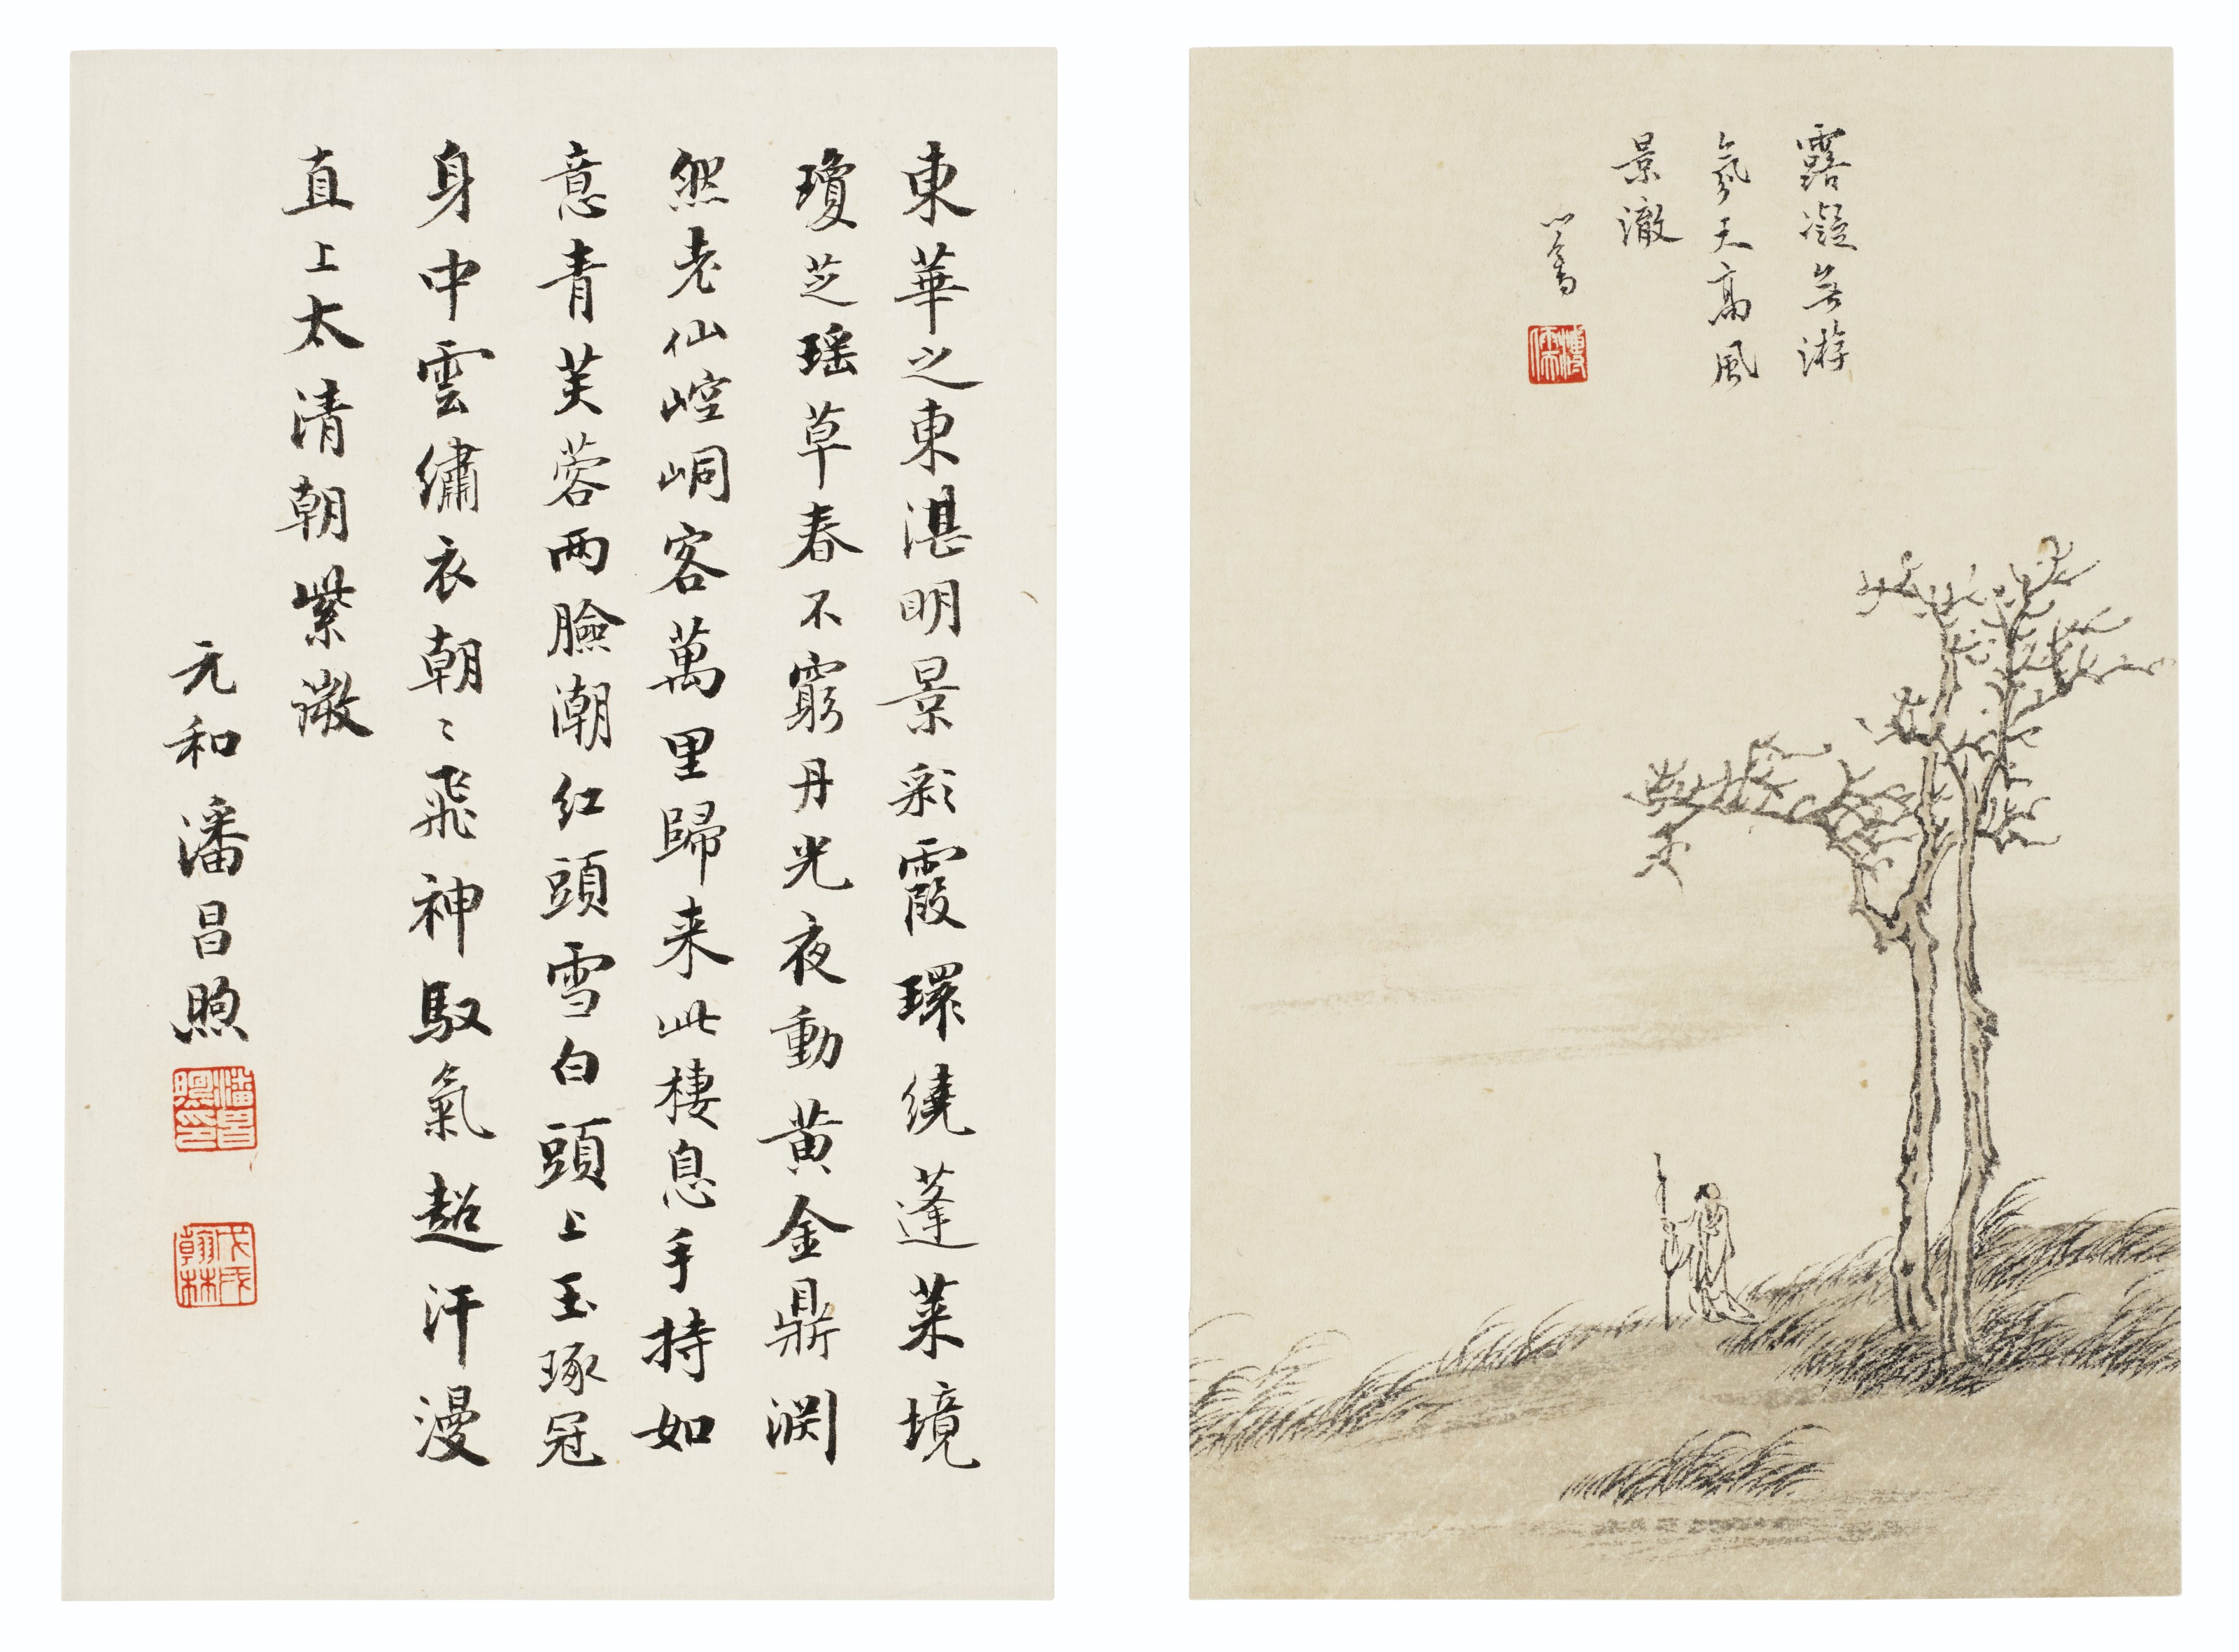 露凝無游
氛天高風
景澈
心畬
溥儒
東華之東湛明景彩霞環繞蓬萊境
瓊芝瑶草春不窮丹光夜動黃金鼎渕
然老仙崆峒客萬里歸来此棲息手持如
意青芙蓉两臉潮紅頭雪白頭上玉琢冠
身中雲繡衣朝〻飛神馭氣超汗漫
直上太清朝紫微
元和潘昌煦
潘昌煦印
戊戌翰林